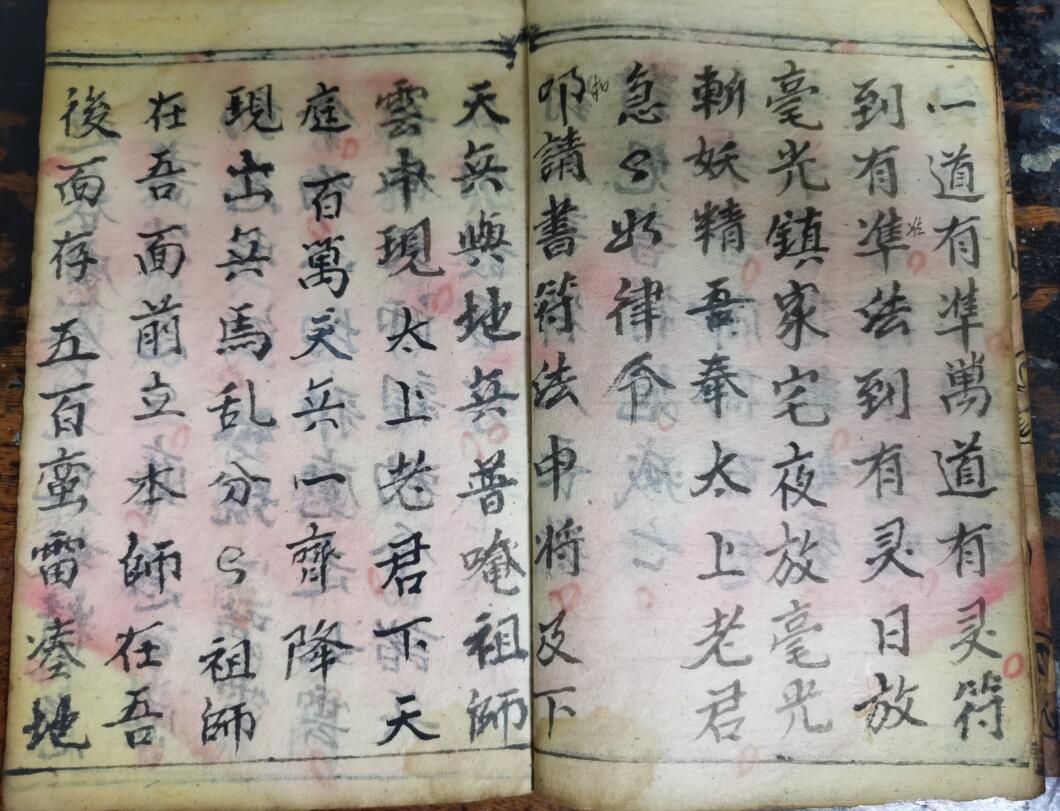 一道有準萬道有灵符
到有準法到有灵日放
毫光鎮家宅夜放毫光
斬妖精吾奉太上老君
急〻如律令
叩請書符法申将及下
天兵與地兵普唵祖師
雲申現太上老君下天
庭百萬天兵一齊降
現出兵馬乱分〻祖師
在吾面前立本師在吾
後面存五百蛮雷地